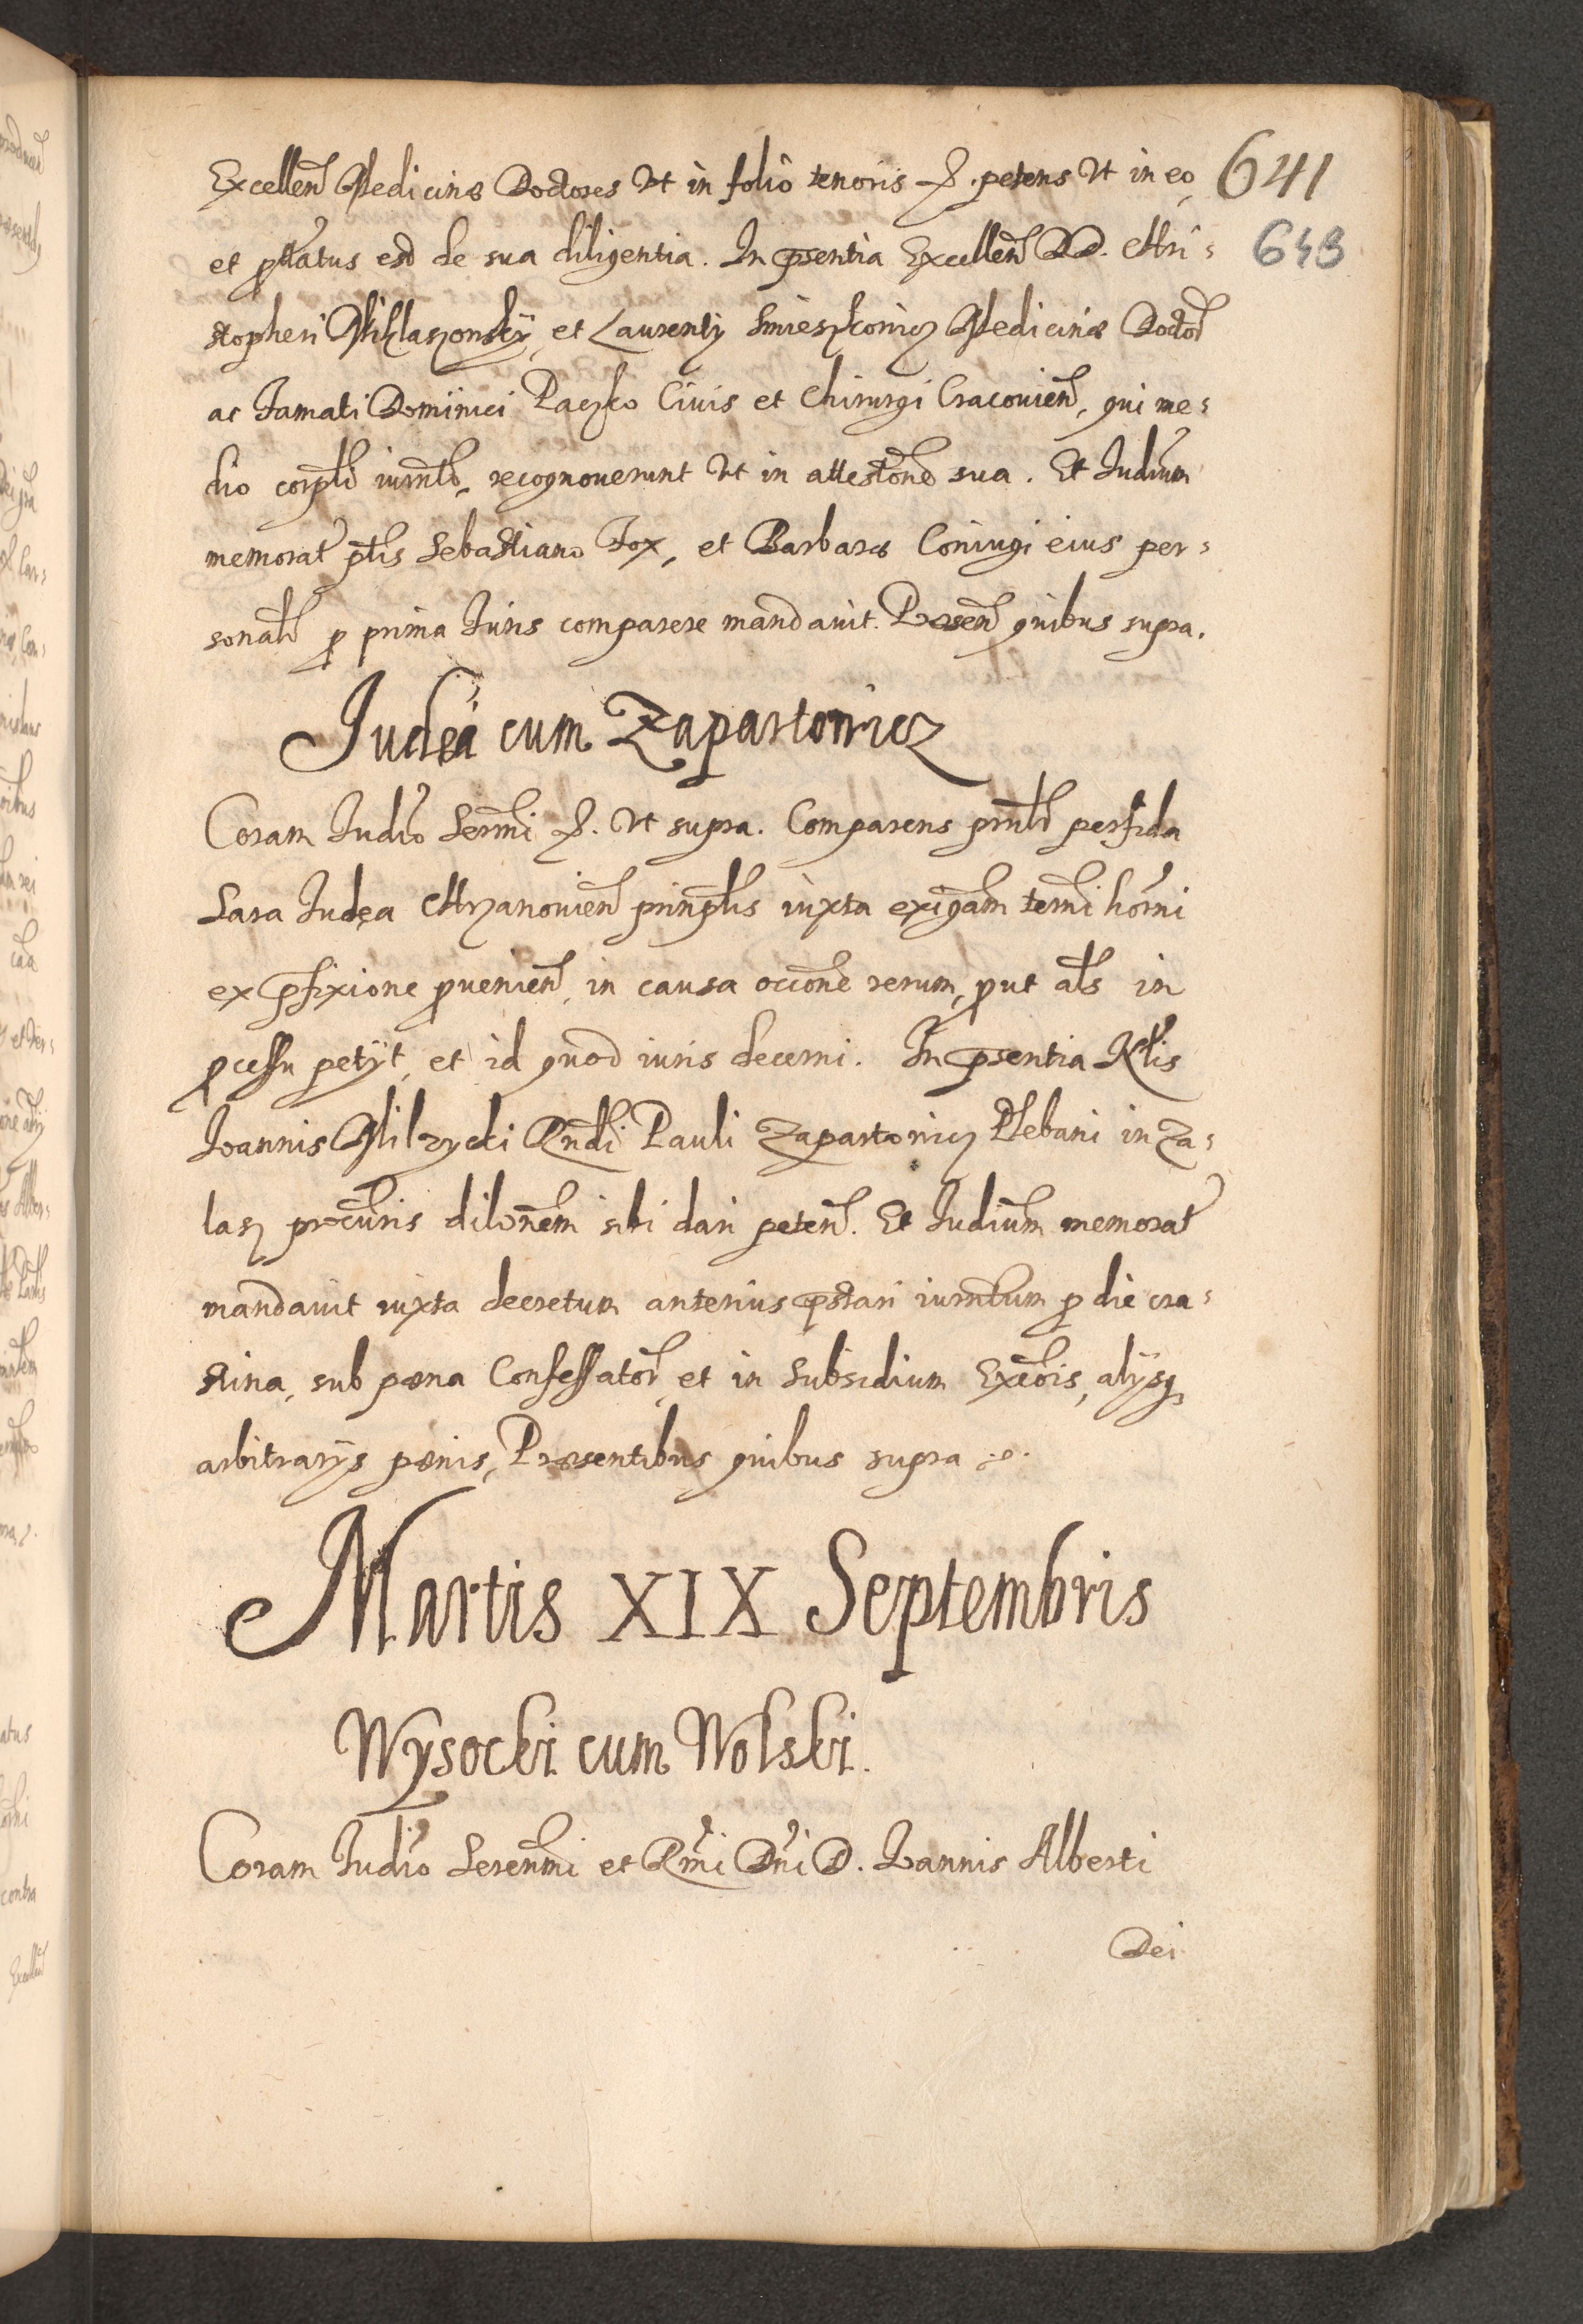 Excellen Medicinæ Doctores Ut in folio tenoris &. petens Ut in eo, 641
et prottatus est de sua diligentia. In psentia Excellen DD. Chri- 643
stopheri Miklaszowsky, et Laurentÿ Smieszkowicz Medicinæ Doctor
ac Famati Dominici Paczko Civis et Chirurgi Cracovien, qui me-
dio corpli iurmto, recognoverunt Ut in attestone sua. Et Iudium
memorat ptis Sebastiano Fox, et Barbaræ Coniugi eius per-
sonalr p prima Iuris comparere mandavit. Præsen quibus supra.
Iudęa cum Zapartowicz
Coram Iudio Sermi &. Ut supra. Comparens prntr perfida
Sara Iudęa Chrzanovien prinplis iuxta exigam termi horni
ex pfixione pvenien, in causa occone rerum, put als in
pcessu petÿt, et id quod iuris decerni. In psentia Nblis
Ioannis Milzycki Rndi Pauli Zapartowicz Plebani in Za-
lasz procuris dilonem sibi dari peten. Et Iudium memorat
mandavit iuxta decretum anterius pstari iurmtum p die cra-
stina, sub pœna Confessator, et in subsidium Excōis, alÿsq
arbitrarÿs pœnis, Præsentibus quibus supra
Martis XIX Septembris
Wysocki cum Wolski.
Coram Iudio Serenmi et Rmi Dni D. Ioannis Alberti
Dei